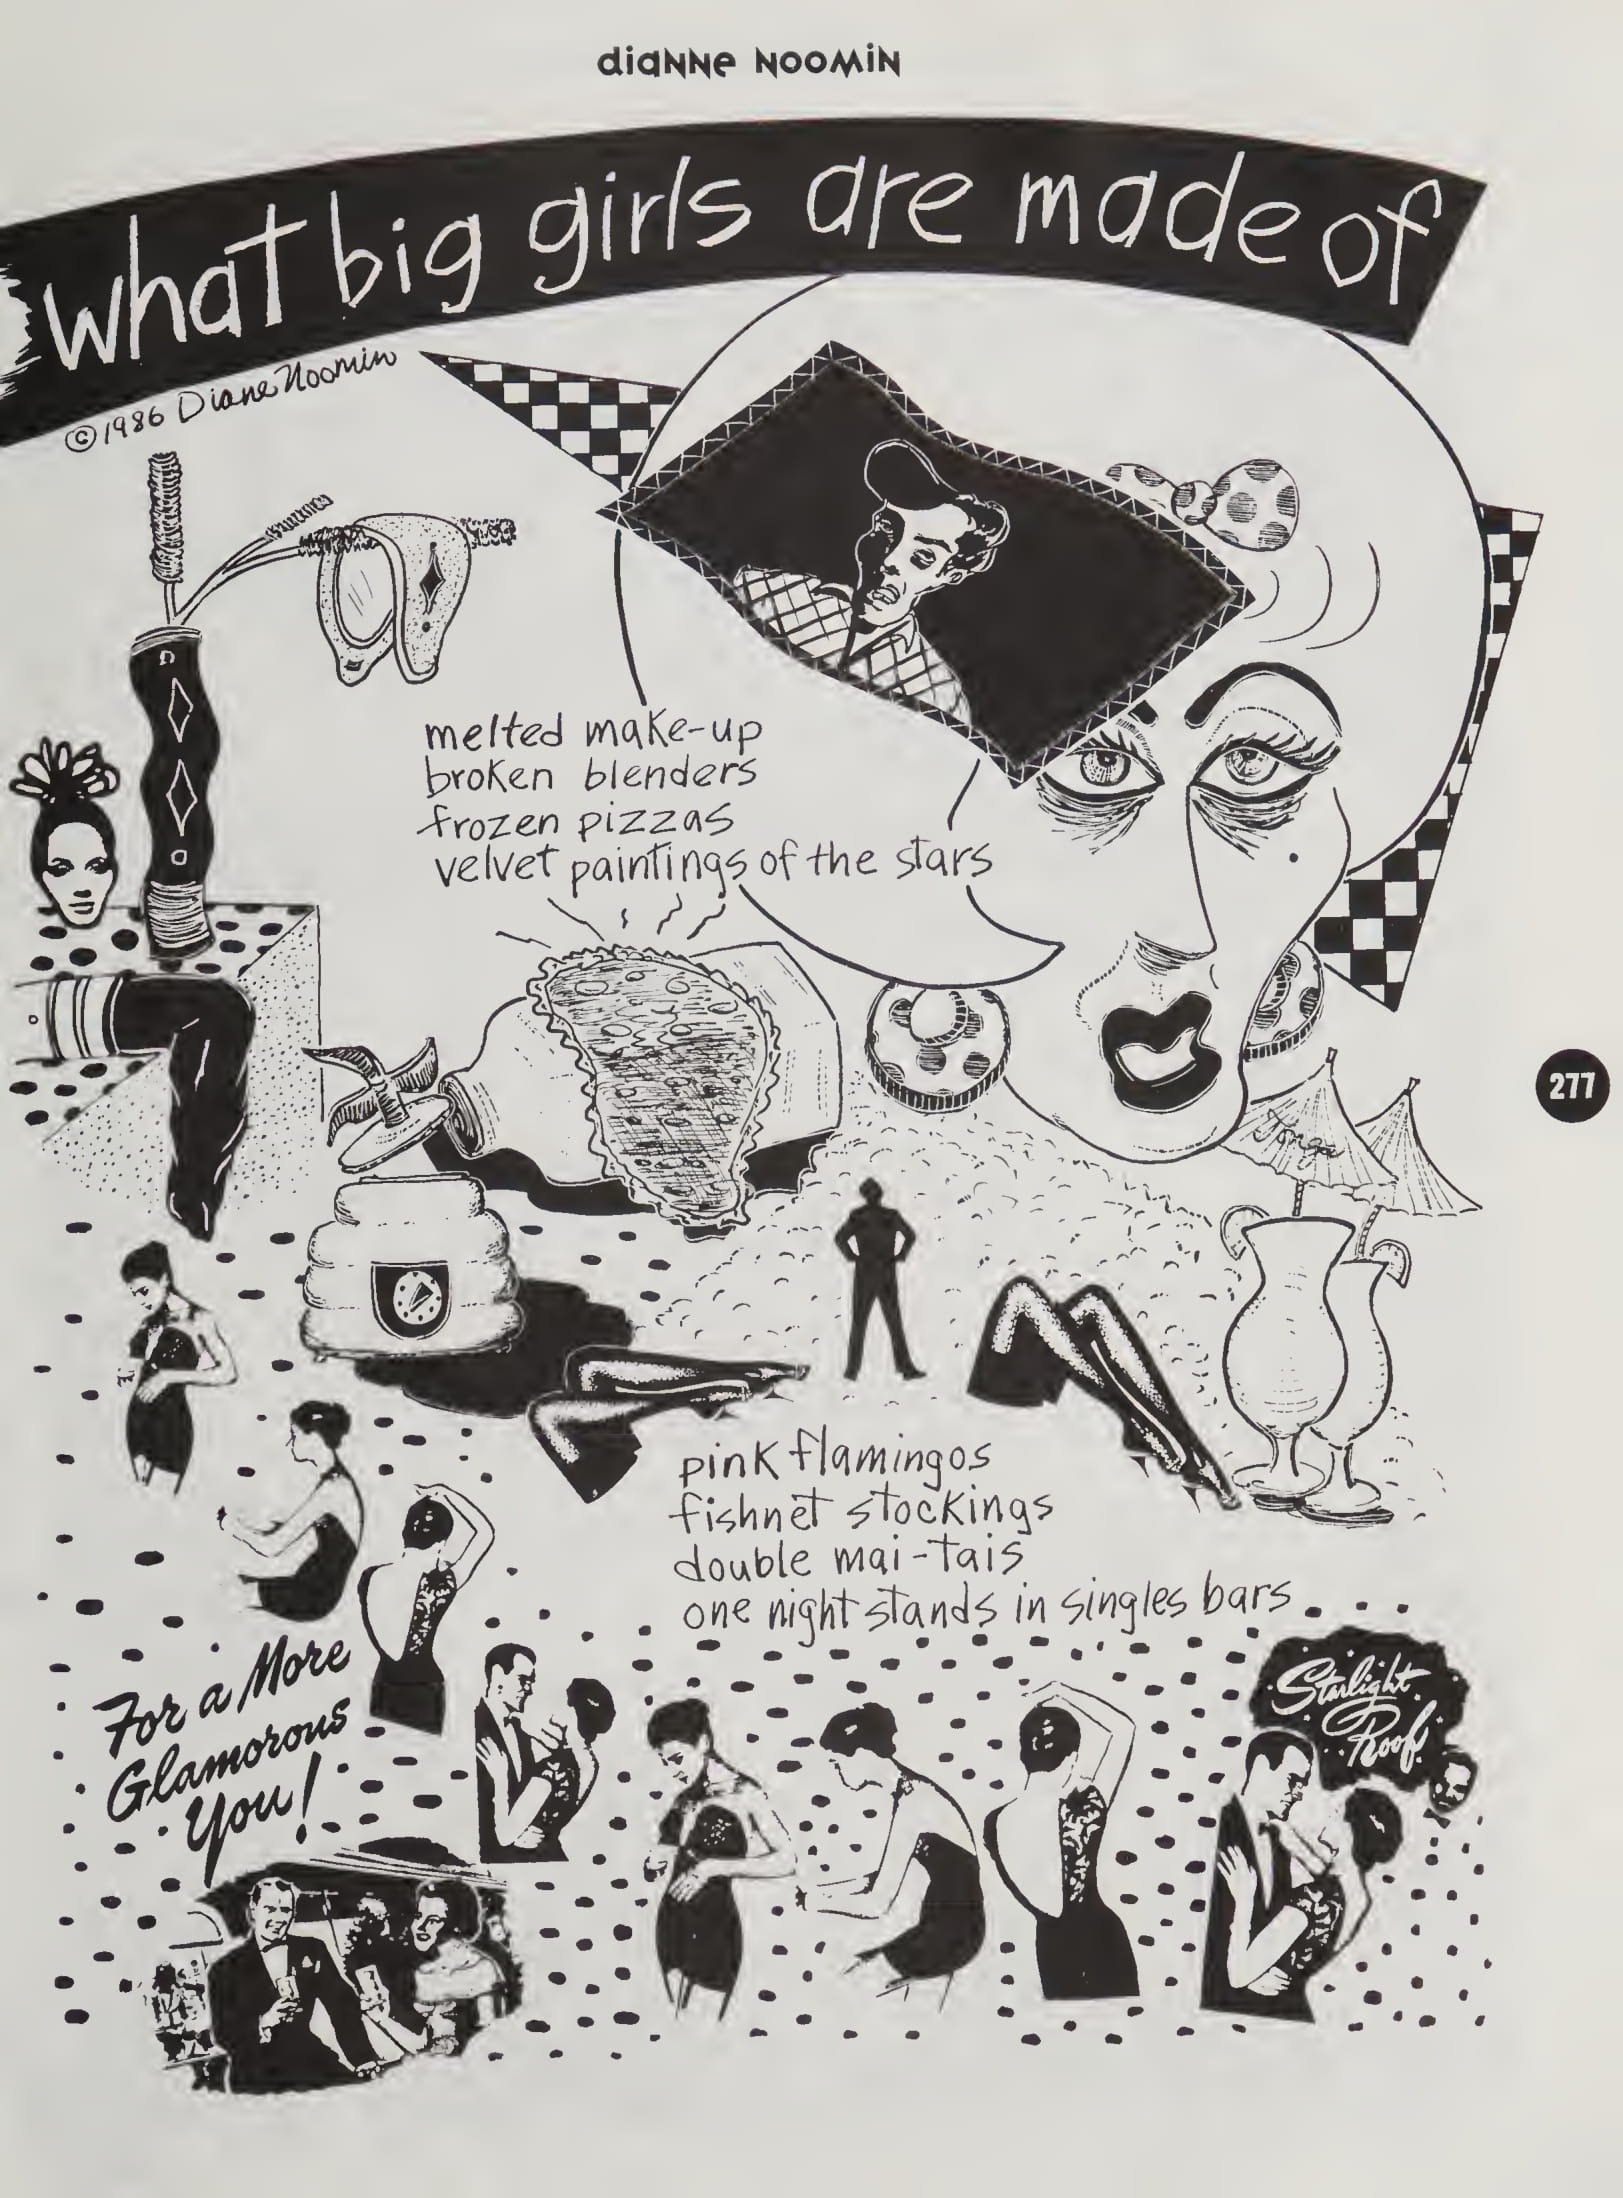 diaNNe NOOMiN
What big girls are made of
©1986 Diane Noomin
melted make-up
broken blenders
frozen pizzas
velvet paintings of the stars
Tonga
277
pink flamingos
fishnet stockings
double mai-tais
one night stands in singles bars
For a More
Glamorous
You!
Starlight
Roof